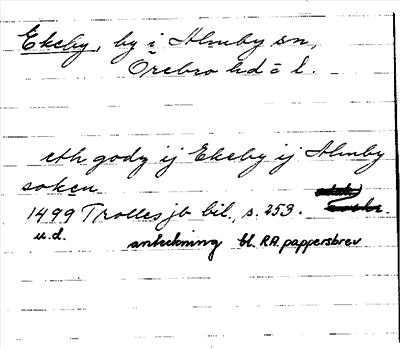 Ekeby, by i Almby sn,
Örebro hd o l.
eth godz ij Ekeby ij Almby
soken
1499 Trolles jb bil., s. 253.
u.d. anteckning bl. RA pappersbrev